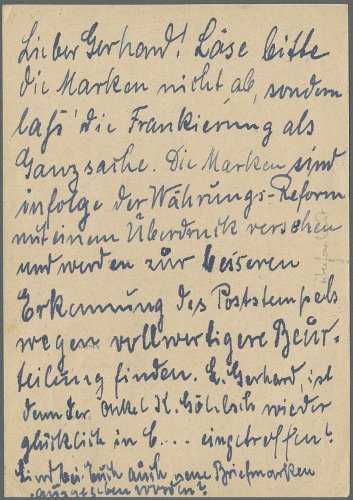 Lieber Gerhard! Löse bitte
die Marken nicht ab, sondern
laß' die Frankierung als
Ganzsache. Die Marken sind
infolge der Währungs-Reform
mit einem Überdruck versehen
und werden zur besseren
Erkennung des Poststempels
wegen vollwertigere Beur-
teilung finden. L. Gerhard, ist
denn der Onkel K. wieder
glücklich in E.... eingetroffen?
Sind bei Euch auch neue Briefmarken
ausgegeben worden?